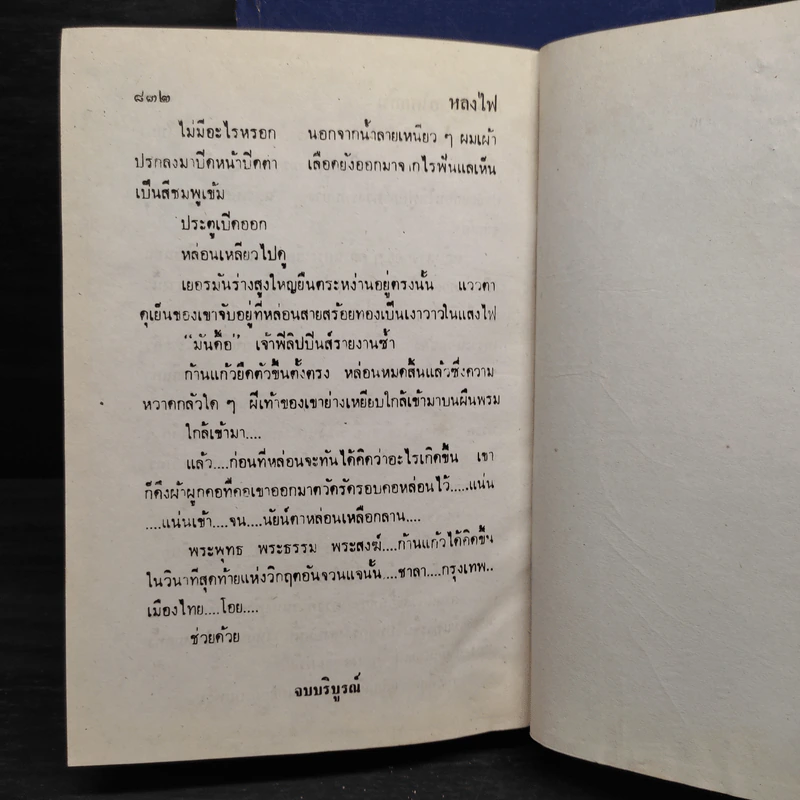 ๘๓๒ หลงไฟ
ไม่มีอะไรหรอก นอกจากน้ำลายเหนียว ๆ ผมเผ้า
ปรกลงมาปิดหน้าปิดตา เลือดยังออกมาจากไรฟันแลเห็น
เป็นสีชมพูเข้ม
ประตูเปิดออก
หล่อนเหลียวไปดู
เยอรมันร่างสูงใหญ่ยืนตระหง่านอยู่ตรงนั้น แววตา
ดุเย็นของเขาจับอยู่ที่หล่อนสายสร้อยทองเป็นเงาวาวในแสงไฟ
"มันดื้อ" เจ้าฟิลิปปีนส์รายงานซ้ำ
ก้านแก้วยืดตัวขึ้นตั้งตรง หล่อนหมดสิ้นแล้วซึ่งความ
หวาดกลัวใด ๆ ฝีเท้าของเขาย่างเหยียบใกล้เข้ามาบนผืนพรม
ใกล้เข้ามา....
แล้ว....ก่อนที่หล่อนจะทันได้คิดว่าอะไรเกิดขึ้น เขา
ก็ดึงผ้าผูกคอที่คอเขาออกมาตวัดรัดรอบคอหล่อนไว้.....แน่น
....แน่นเข้า....จน....นัยน์ตาหล่อนเหลือกลาน....
พระพุทธ พระธรรม พระสงฆ์....ก้านแก้วได้คิดขึ้น
ในวินาทีสุดท้ายแห่งวิกฤตอันจวนแจนั้น....ชาลา....กรุงเทพ..
เมืองไทย....โอย....
ช่วยด้วย
จบบริบูรณ์